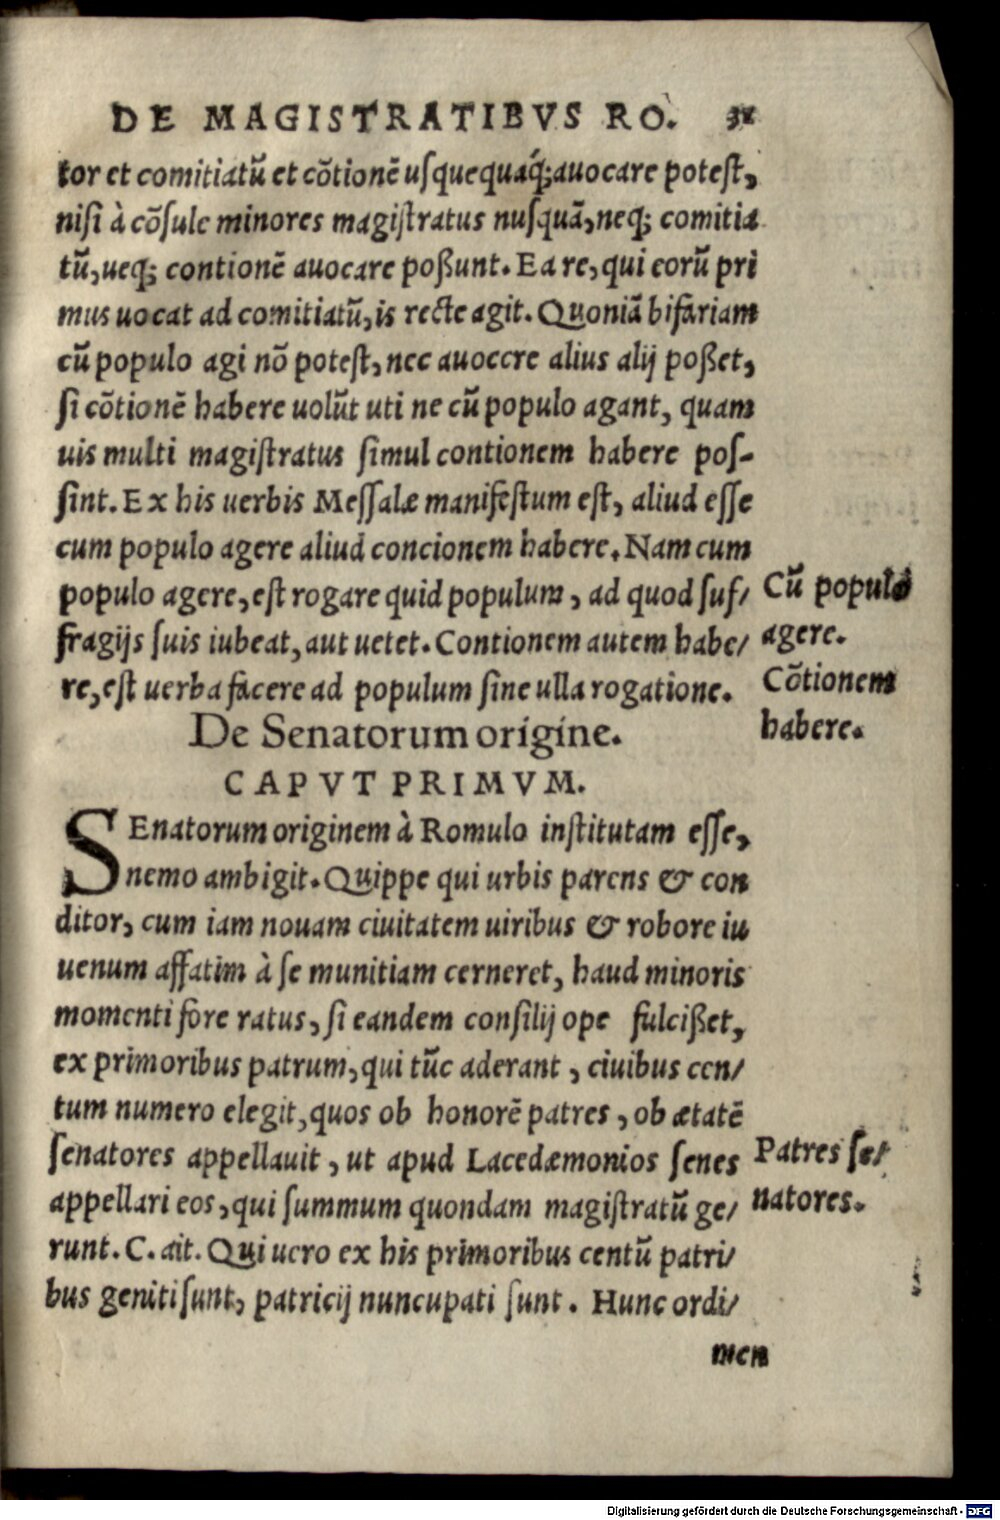 DE MAGISTRATIBVS RO.
tor et comitiatũ et cõtionẽ uſquequáq; auocare poteſt,
niſi à cõſule minores magiſtratus nuſquã, neq; comitia
tũ, ueq; contionẽ auocare poßunt. Ea re, qui eorũ pri
mus uocat ad comitiatũ, is recte agit. Quoniã bifariam
cũ populo agi nõ poteſt, nec auoccre alius alij poßet,
ſi cõtionẽ habere uolũt uti ne cũ populo agant, quam
uis multi magiſtratus ſimul contionem habere poſ-
ſint. Ex his uerbis Meſſalæ manifeſtum eſt, aliud eſſe
cum populo agere aliud concionem habere. Nam cum
populo agere, eſt rogare quid populum, ad quod ſuf/
fragijs ſuis iubeat, aut uetet. Contionem autem habe/
re, eſt uerba facere ad populum ſine ulla rogatione.
Cũ populo
agere.
Cõtionem
habere.
De Senatorum origine.
CAPVT PRIMVM.
SEnatorum originem à Romulo inſtitutam eſſe,
nemo ambigit. Quippe qui urbis parens & con
ditor, cum iam nouam ciuitatem uiribus & robore iu
uenum affatim à ſe munitiam cerneret, haud minoris
momenti fore ratus, ſi eandem conſilij ope fulcißet,
ex primoribus patrum, qui tũc aderant, ciuibus cen/
tum numero elegit, quos ob honorẽ patres, ob ætatẽ
ſenatores appellauit, ut apud Lacedæmonios ſenes
appellari eos, qui ſummum quondam magiſtratũ ge/
runt. C. ait. Qui uero ex his primoribus centũ patri/
bus geniti ſunt, patricij nuncupati ſunt. Hunc ordi/
Patres ſe/
natores.
men
Digitalisierung gefördert durch die Deutsche Forschungsgemeinschaft - DFG